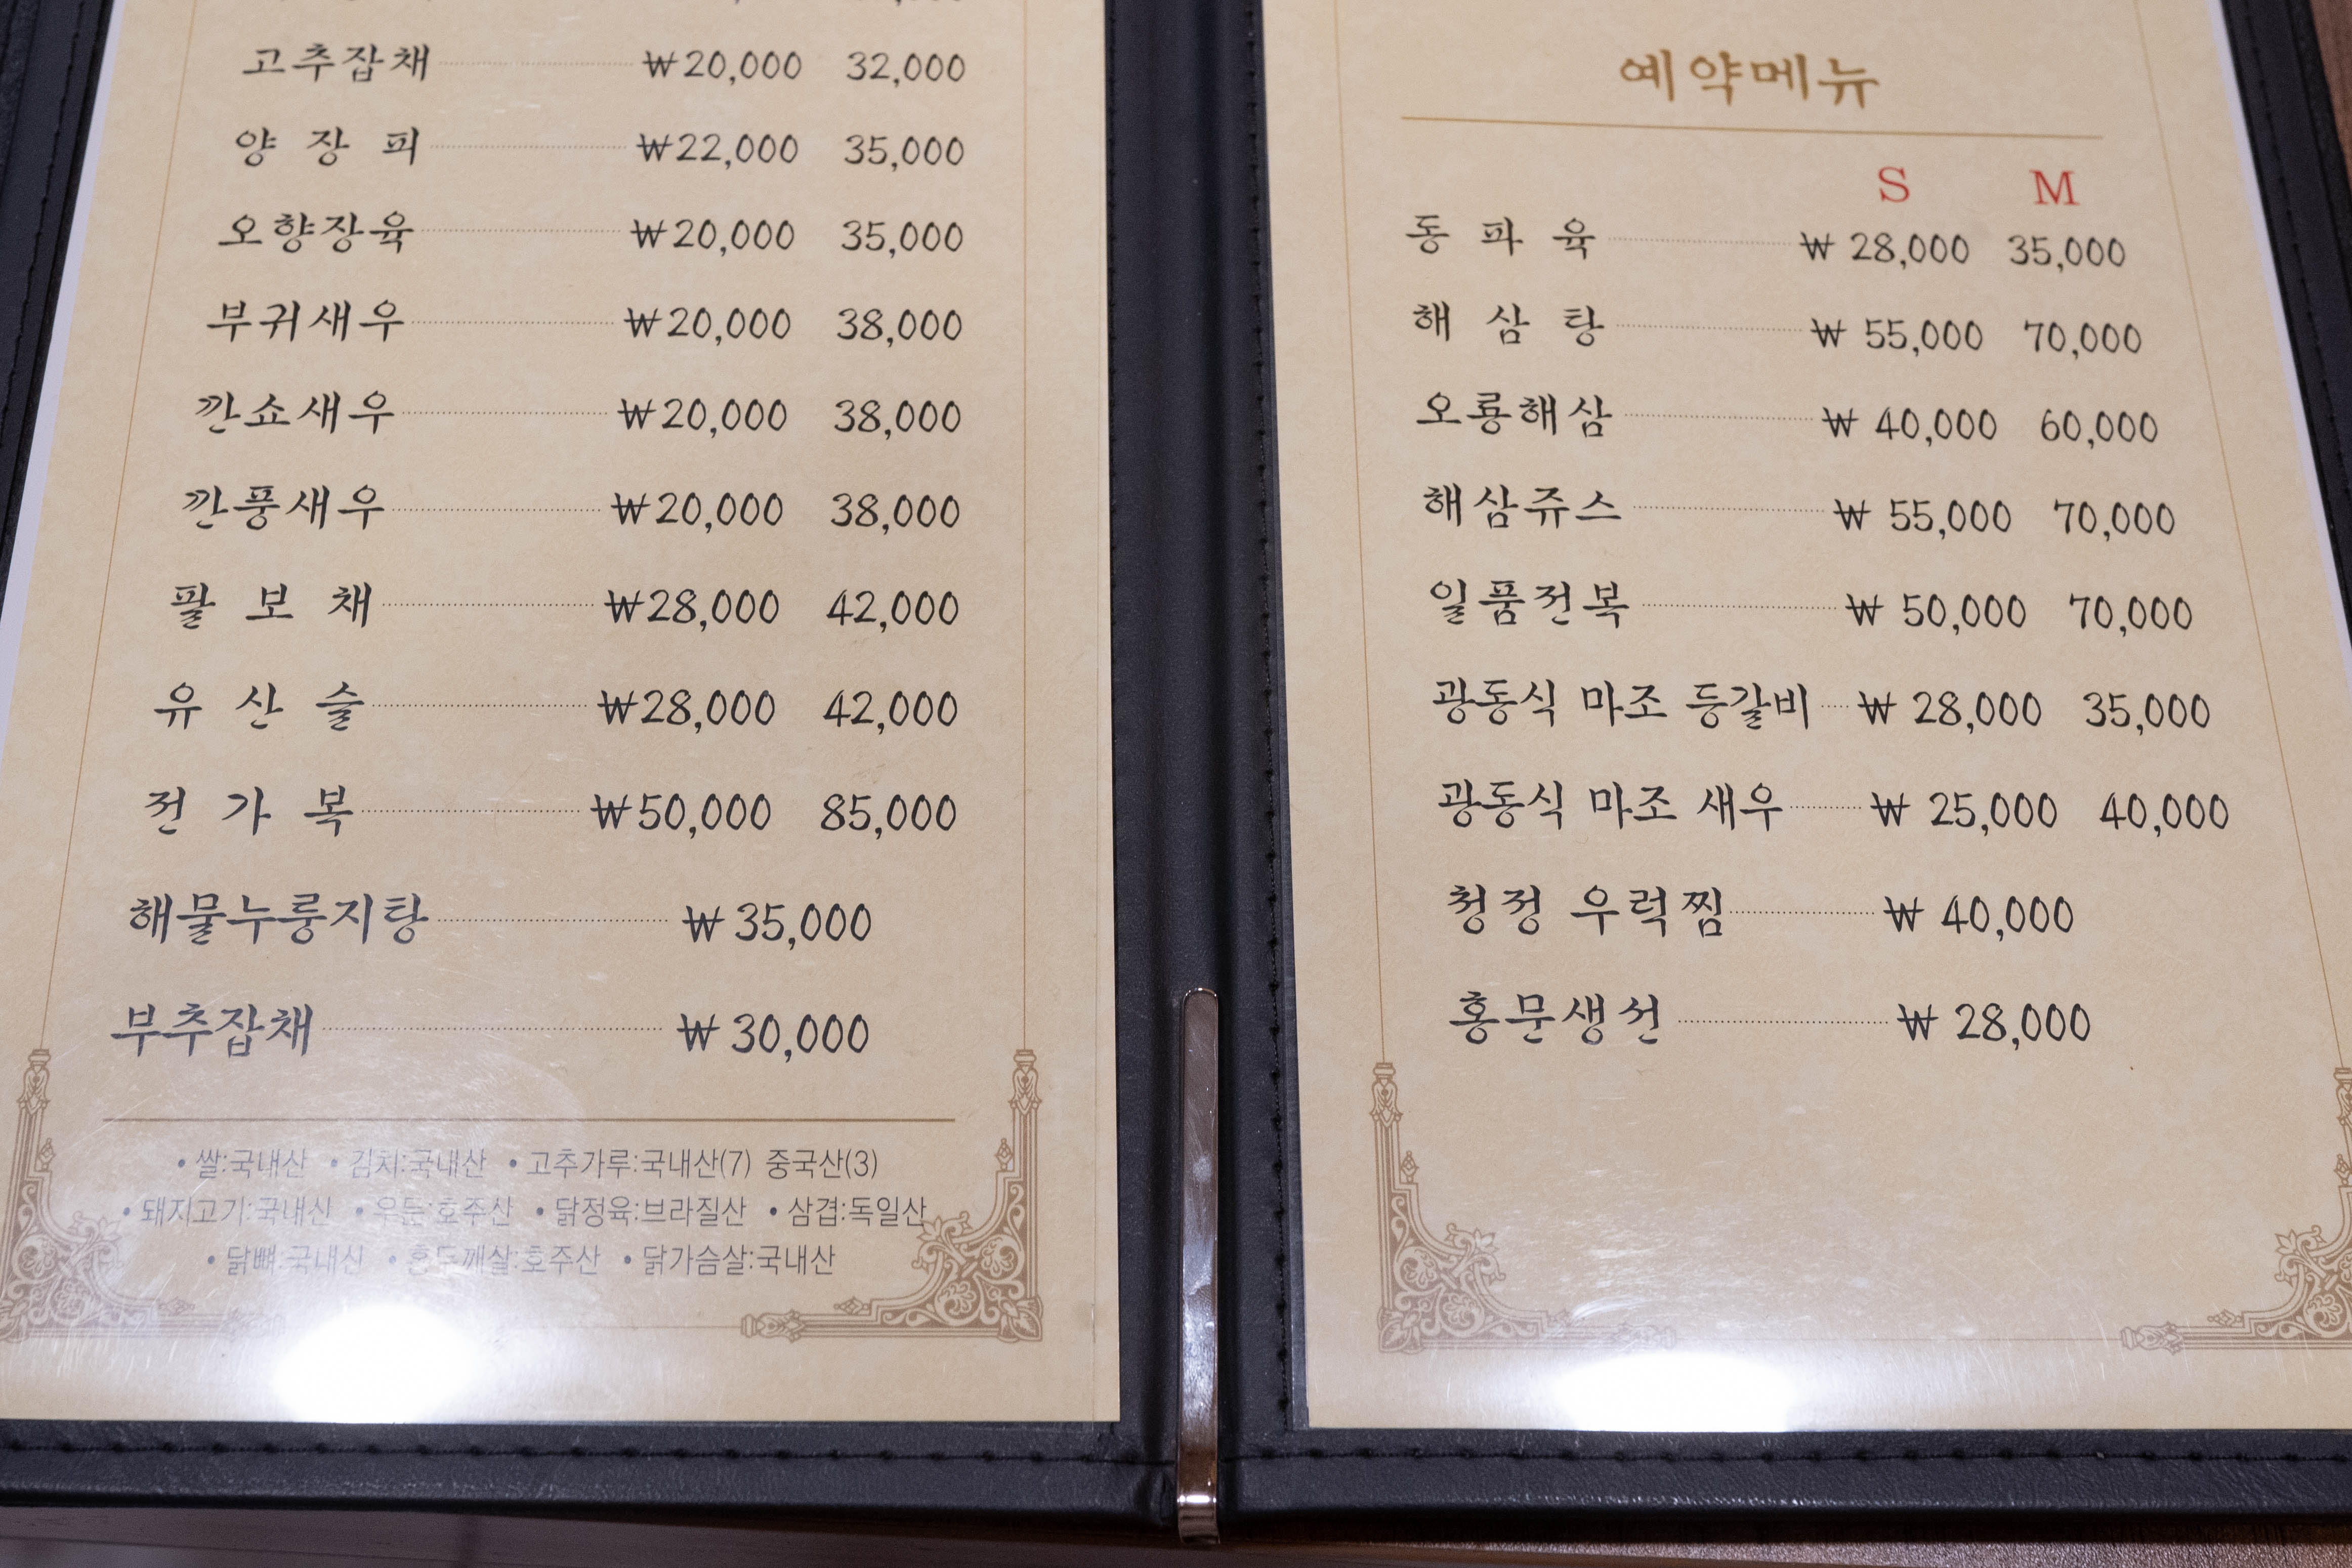 고추잡채 ₩20,000 32,000
양 장 피 ₩22,000 35,000
오향장육 ₩20,000 35,000
부귀새우 ₩20,000 38,000
깐쇼새우 ₩20,000 38,000
깐풍새우 ₩20,000 38,000
팔 보 채 ₩28,000 42,000
유 산 슬 ₩28,000 42,000
전 가 복 ₩50,000 85,000
해물누룽지탕 ₩35,000
부추잡채 ₩30,000
• 쌀:국내산 • 김치:국내산 • 고추가루:국내산(7) 중국산(3)
• 돼지고기:국내산 • 우둔:호주산 • 닭정육:브라질산 • 삼겹:독일산
• 닭뼈:국내산 • 홍두깨살:호주산 • 닭가슴살:국내산
예약메뉴
S M
동 파 육 ₩ 28,000 35,000
해 삼 탕 ₩ 55,000 70,000
오룡해삼 ₩ 40,000 60,000
해삼쥬스 ₩ 55,000 70,000
일품전복 ₩ 50,000 70,000
광동식 마조 등갈비 ₩ 28,000 35,000
광동식 마조 새우 ₩ 25,000 40,000
청정 우럭찜 ₩ 40,000
홍문생선 ₩ 28,000